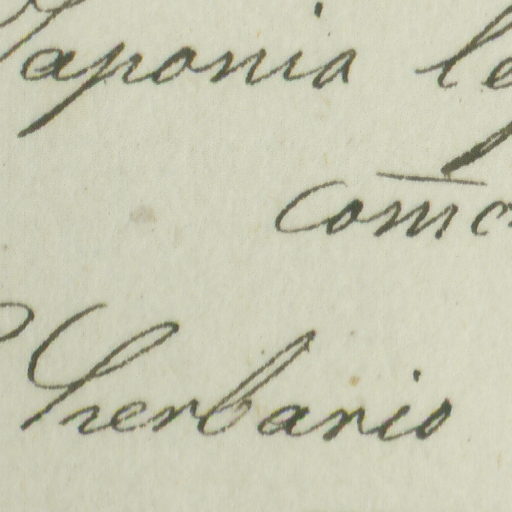 Japonia le
com̅
Herbario